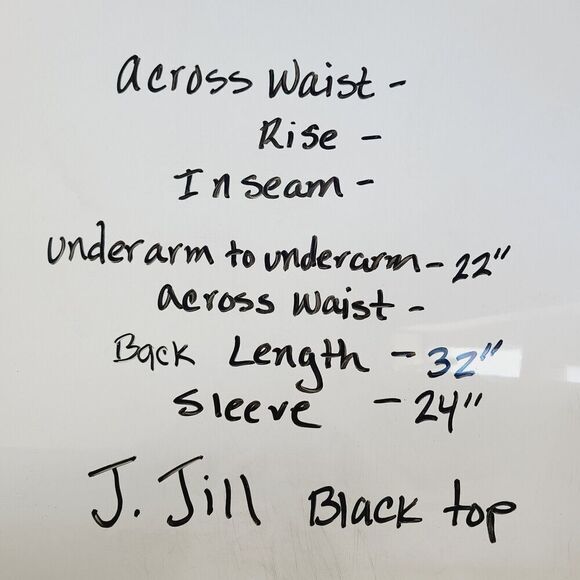 Across Waist -
Rise -
Inseam -
underarm to underarm - 22"
Across Waist -
Back Length - 32"
Sleeve - 24"
J. Jill Black top